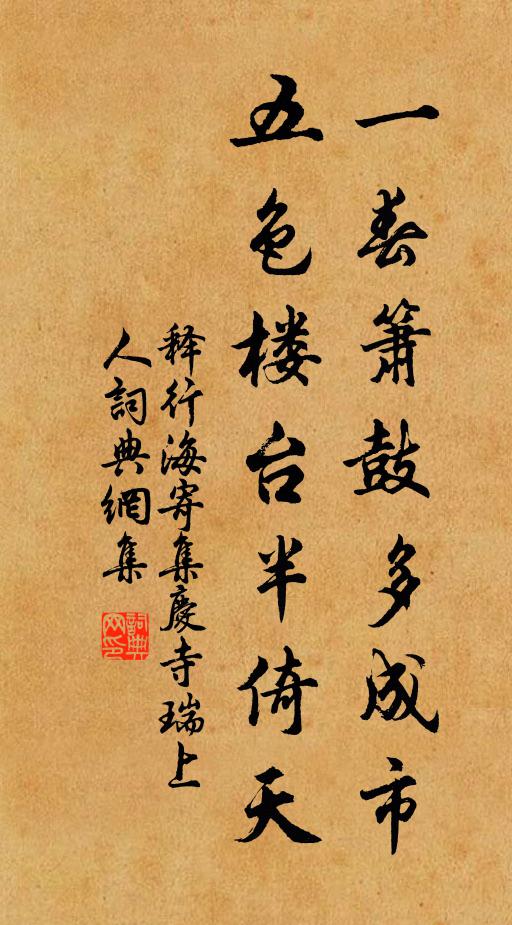 一春簫鼓多成市
五色楼台半倚天
释行海寄集慶寺瑞上
人詞典網集
詞典
网印